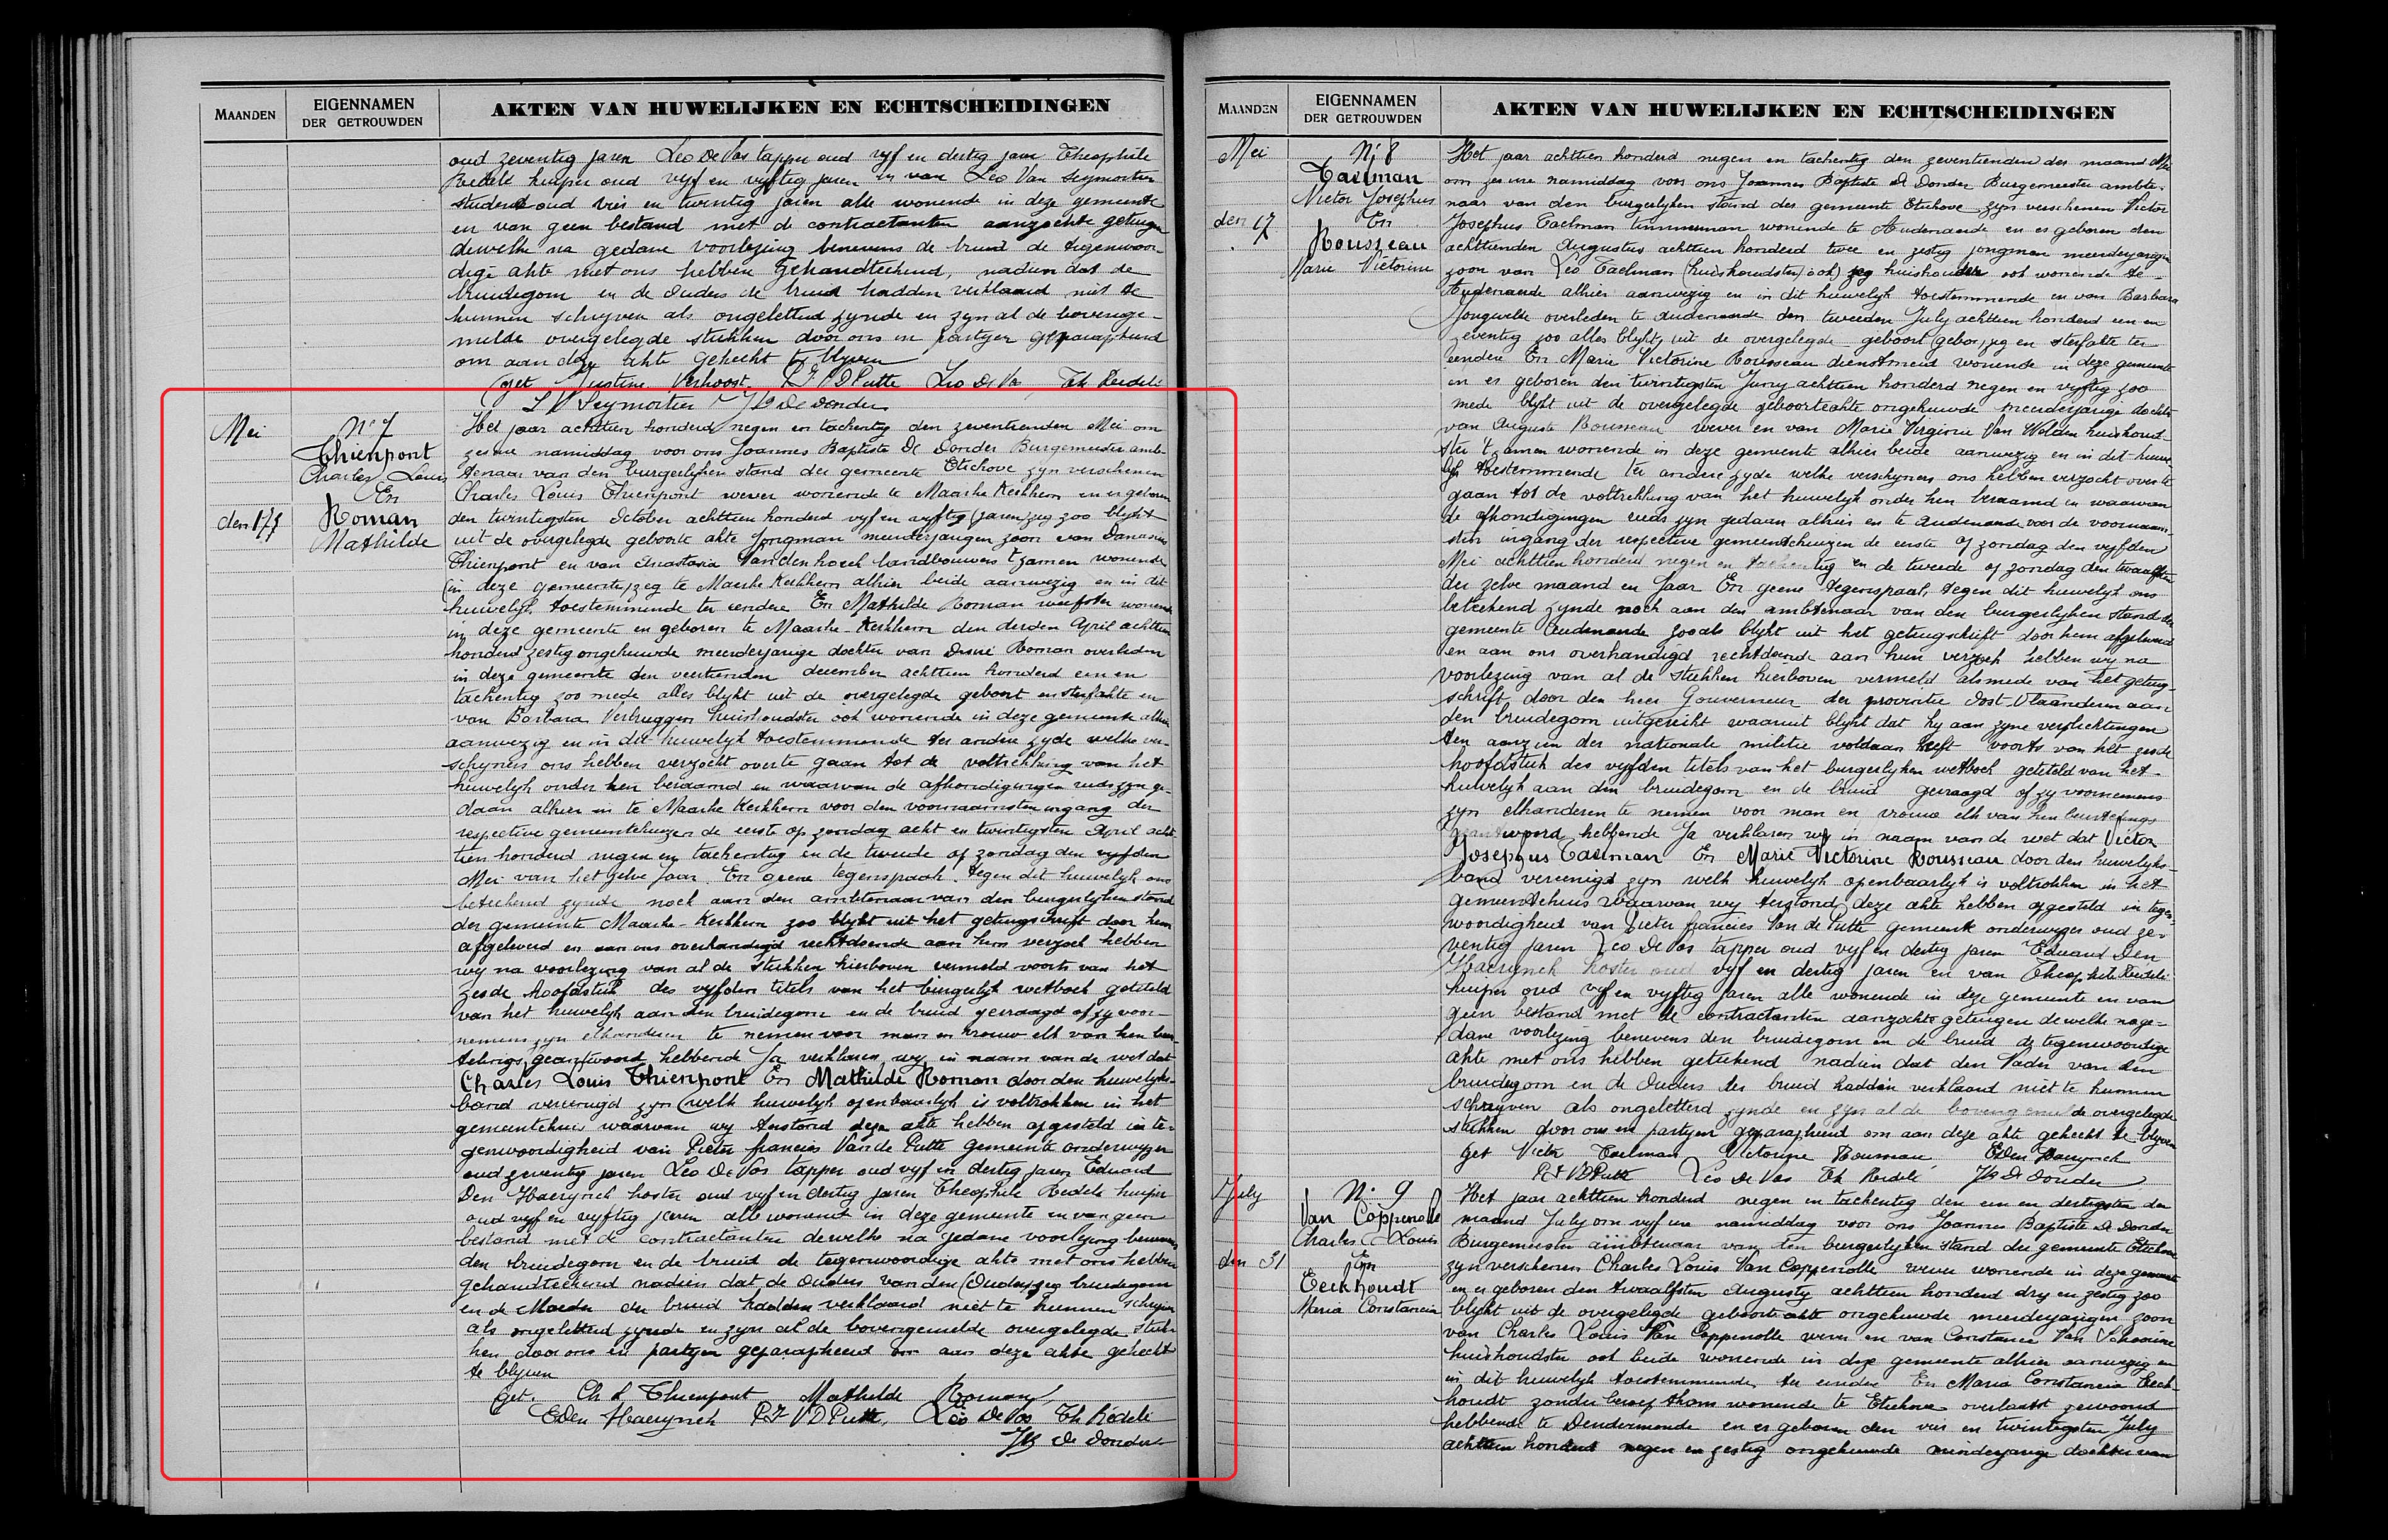 MAANDEN
EIGENNAMEN
DER GETROUWDEN
AKTEN VAN HUWELIJKEN EN ECHTSCHEIDINGEN
oud zeventig jaren Leo De Vos tapper oud vyf en dertig jaar Theophile
Redele kuiper oud vyf en vyftig jaren en van Leo Van Seymortier
student oud vier en twintig jaren alle wonende in deze gemeente
en van geen bestand met de contractanten aanzochte getuigen
dewelke na gedane voorlezing benevens de bruid de tegenwoor-
dige akte met ons hebben gehandteekend, nadien dat de
bruidegom en de ouders de bruid hadden verklaard niet te
kunnen schryven als ongeletterd zynde en zyn al de bovenge-
melde overgelegde stukken door ons en partyen geparapheerd
om aan deze akte gehecht te blyven
(get Justine Verhoost P F V D Putte Leo De Vos Th Redele
L V Seymortier JB De donder
Mei
den 17
N° 7
Thienpont
Charles Louis
En
Roman
Mathilde
Het jaar achttien honderd negen en tachentig den zeventienden Mei om
zes ure namiddag voor ons Joannes Baptiste De Donder Burgemeester amb-
tenaar van den burgerlyken stand der gemeente Etichove zyn verschenen
Charles Louis Thienpont wever wonende te Maarke Kerkhem en er geboren
den twintigsten October achttien honderd vyf en vyftig (jaren) zeg zoo blykt
uit de overgelegde geboorte akte jongman meerderjarigen zoon van
Thienpont en van Anastasia Vandenhoek landbouwers t'zamen wonende
(in deze gemeente) zeg te Maarke Kerkhem alhier beide aanwezig en in dit
huwelyk toestemmende ter eendere En Mathilde Roman weefster wonende
in deze gemeente en geboren te Maarke-Kerkhem den derden April achttien
honderd zestig ongehuwde meerderjarige dochter van Desiré Roman overleden
in deze gemeente den veertienden december achttien honderd een en
tachentig zoo mede alles blykt uit de overgelegde geboort en sterfakte en
van Barbara Verbruggen huishoudster ook wonende in deze gemeente alhier
aanwezig en in dit huwelyk toestemmende ter andere zyde welke ver-
schyners ons hebben verzocht over te gaan tot de voltrekking van het
huwelyk onder hen beraamd en waarvan de afkondigingen reeds zyn ge-
daan alhier en te Maarke Kerkhem voor den voornaamsten ingang der
respective gemeentehuizen de eerste op zondag acht en twintigsten April acht
tien honderd negen en tachentig en de tweede op zondag den vyfden
Mei van het zelve jaar. En geene tegenspraak tegen dit huwelyk ons
beteekend zynde noch aan den ambtenaar van den burgerlyken stand
der gemeente Maarke-Kerkhem zoo blykt uit het getuigschrift door hem
afgeleverd en aan ons overhandigd rechtdoende aan hun verzoek hebben
wy na voorlezing van al de stukken hierboven vermeld voorts van het
zesde hoofdstuk des vyfden titels van het burgerlyk wetboek getiteld
van het huwelyk aan den bruidegom en de bruid gevraagd of zy voor-
nemens zyn elkanderen te nemen voor man en vrouw elk van hen beur-
telings geantwoord hebbende Ja verklaren wy in naam van de wet dat
Charles Louis Thienpont En Mathilde Roman door den huwelyks-
band vereenigd zyn welk huwelyk openbaarlyk is voltrokken in het
gemeentehuis waarvan wy terstond deze akte hebben opgesteld in te-
genwoordigheid van Pieter francies Van de Putte gemeente onderwyzer
oud zeventig jaren Leo De Vos tapper oud vyf en dertig jaren Eduard
Den Haerynck koster oud vyf en dertig jaren Theophile Redele kuiper
oud vyf en vyftig jaren alle wonende in deze gemeente en van geen
bestand met de contractanten dewelke na gedane voorlezing benevens
den bruidegom en de bruid de tegenwoordige akte met ons hebben
gehandteekend nadien dat de ouders van den (ouders) zeg bruidegom
en de Moeder der bruid hadden verklaard niet te kunnen schryven
als ongeletterd zynde en zyn al de bovengemelde overgelegde stuk-
ken door ons en partyen geparapheerd om aan deze akte gehecht
te blyven
(get. Ch L Thienpont Mathilde Roman
EDen Haerynck P F V D Putte, Leo De Vos Th Redele
JB De donder
MAANDEN
EIGENNAMEN
DER GETROUWDEN
AKTEN VAN HUWELIJKEN EN ECHTSCHEIDINGEN
Mei
den 17
N° 8
Taelman
Victor Josephus
En
Rousseau
Marie Victorine
Het jaar achttien honderd negen en tachentig den zeventienden der maand Mei
om zes ure namiddag voor ons Joannes Baptiste De Donder Burgemeester ambte-
naar van den burgerlyken stand der gemeente Etichove zyn verschenen Victor
Josephus Taelman timmerman wonende te Audenaerde en er geboren den
achttienden Augustus achttien honderd twee en zestig jongman meerderjarigen
zoon van Leo Taelman (huishoudster) ook) zeg huishouder ook wonende te
Audenaarde alhier aanwezig en in dit huwelyk toestemmende en van Barbara
Jongwelde overleden te Audenaarde den tweeden July achttien honderd een en
zeventig zoo alles blykt uit de overgelegde geboort (gebor) zeg en sterfakte ter
eendere En Marie Victorine Rousseau dienstmeid wonende in deze gemeente
en er geboren den twintigsten Juny achttien honderd negen en vyftig zoo
mede blykt uit de overgelegde geboorteakte ongehuwde meerderjarige dochter
van Auguste Rousseau wever en van Marie Virginie Van Welden huishoud-
ster t'zamen wonende in deze gemeente alhier beide aanwezig en in dit huwe-
lyk toestemmende ter andere zyde welke verschyners ons hebben verzocht over te
gaan tot de voltrekking van het huwelyk onder hen beraamd en waarvan
de afkondigingen reeds zyn gedaan alhier en te Audenaarde voor de voornaam-
sten ingang der respective gemeentehuizen de eerste op zondag den vyfden
Mei achttien honderd negen en tachentig en de tweede op zondag den twaalfden
der zelve maand en Jaar En geene tegenspraak tegen dit huwelyk ons
beteekend zynde noch aan den ambtenaar van den burgerlyken stand der
gemeente Audenaarde zooals blykt uit het getuigschrift door hem afgeleverd
en aan ons overhandigd rechtdoende aan hun verzoek hebben wy na
voorlezing van al de stukken hierboven vermeld alsmede van het getuig-
schrift door den heer Gouverneur der provintie Oost-Vlaanderen aan
den bruidegom uitgereikt waaruit blykt dat hy aan zyne verplichtingen
ten aanzien der nationale militie voldaan heeft voorts van het zesde
hoofdstuk des vyfden titels van het burgerlyken wetboek getiteld van het
huwelyk aan den bruidegom en de bruid gevraagd of zy voornemens
zyn elkanderen te nemen voor man en vrouw elk van hen beurtelings
geantwoord hebbende Ja verklaren wy in naam van de wet dat Victor
Josephus Taelman En Marie Victorine Rousseau door den huwelyks-
band vereenigd zyn welk huwelyk openbaarlyk is voltrokken in het
gemeentehuis waarvan wy terstond deze akte hebben opgesteld in tegen-
woordigheid van Pieter francies Van de Putte gemeente onderwyzer oud ze-
ventig jaren Leo De Vos tapper oud vyf en dertig jaren Eduard Den
Haerynck koster oud vyf en dertig jaren en van Theophile Redele
kuiper oud vyf en vyftig jaren alle wonende in deze gemeente en van
geen bestand met de contractanten aanzochte getuigen dewelke nage-
dane voorlezing benevens den bruidegom en de bruid de tegenwoordige
akte met ons hebben geteekend nadien dat den Vader van den
bruidegom en de ouders der bruid hadden verklaard niet te kunnen
schryven als ongeletterd zynde en zyn al de bovengemelde overgelegde
stukken door ons en partyen geparapheerd om aan deze akte gehecht te blyven
get Victor Taelman Victorine Rousseau EDen Haerynck
P F V D Putte Leo De Vos Th Redele JB De donder
July
den 31
N° 9
Van Coppenolle
Charles Louis
En
Eeckhoudt
Maria Constancia
Het jaar achttien honderd negen en tachentig den een en dertigsten der
maand July om vyf ure namiddag voor ons Joannes Baptiste De Donder
Burgemeester ambtenaar van den burgerlyken stand der gemeente Etichove
zyn verschenen Charles Louis Van Coppenolle wever wonende in deze gemeente
en er geboren den twaalfsten Augusty achttien honderd dry en zestig zoo
blykt uit de overgelegde geboorte akte ongehuwde meerderjarigen zoon
van Charles Louis Van Coppenolle wever en van Constance Van
huishoudster ook beide wonende in deze gemeente alhier aanwezig en
in dit huwelyk toestemmende ter eindere En Maria Constancia Eeck-
houdt zonder beroep thans wonende te Etichove overlaatst gewoond
hebbende te Dendermonde en er geboren den vier en twintigsten July
achttien honderd negen en zestig ongehuwde minderjarige dochter van